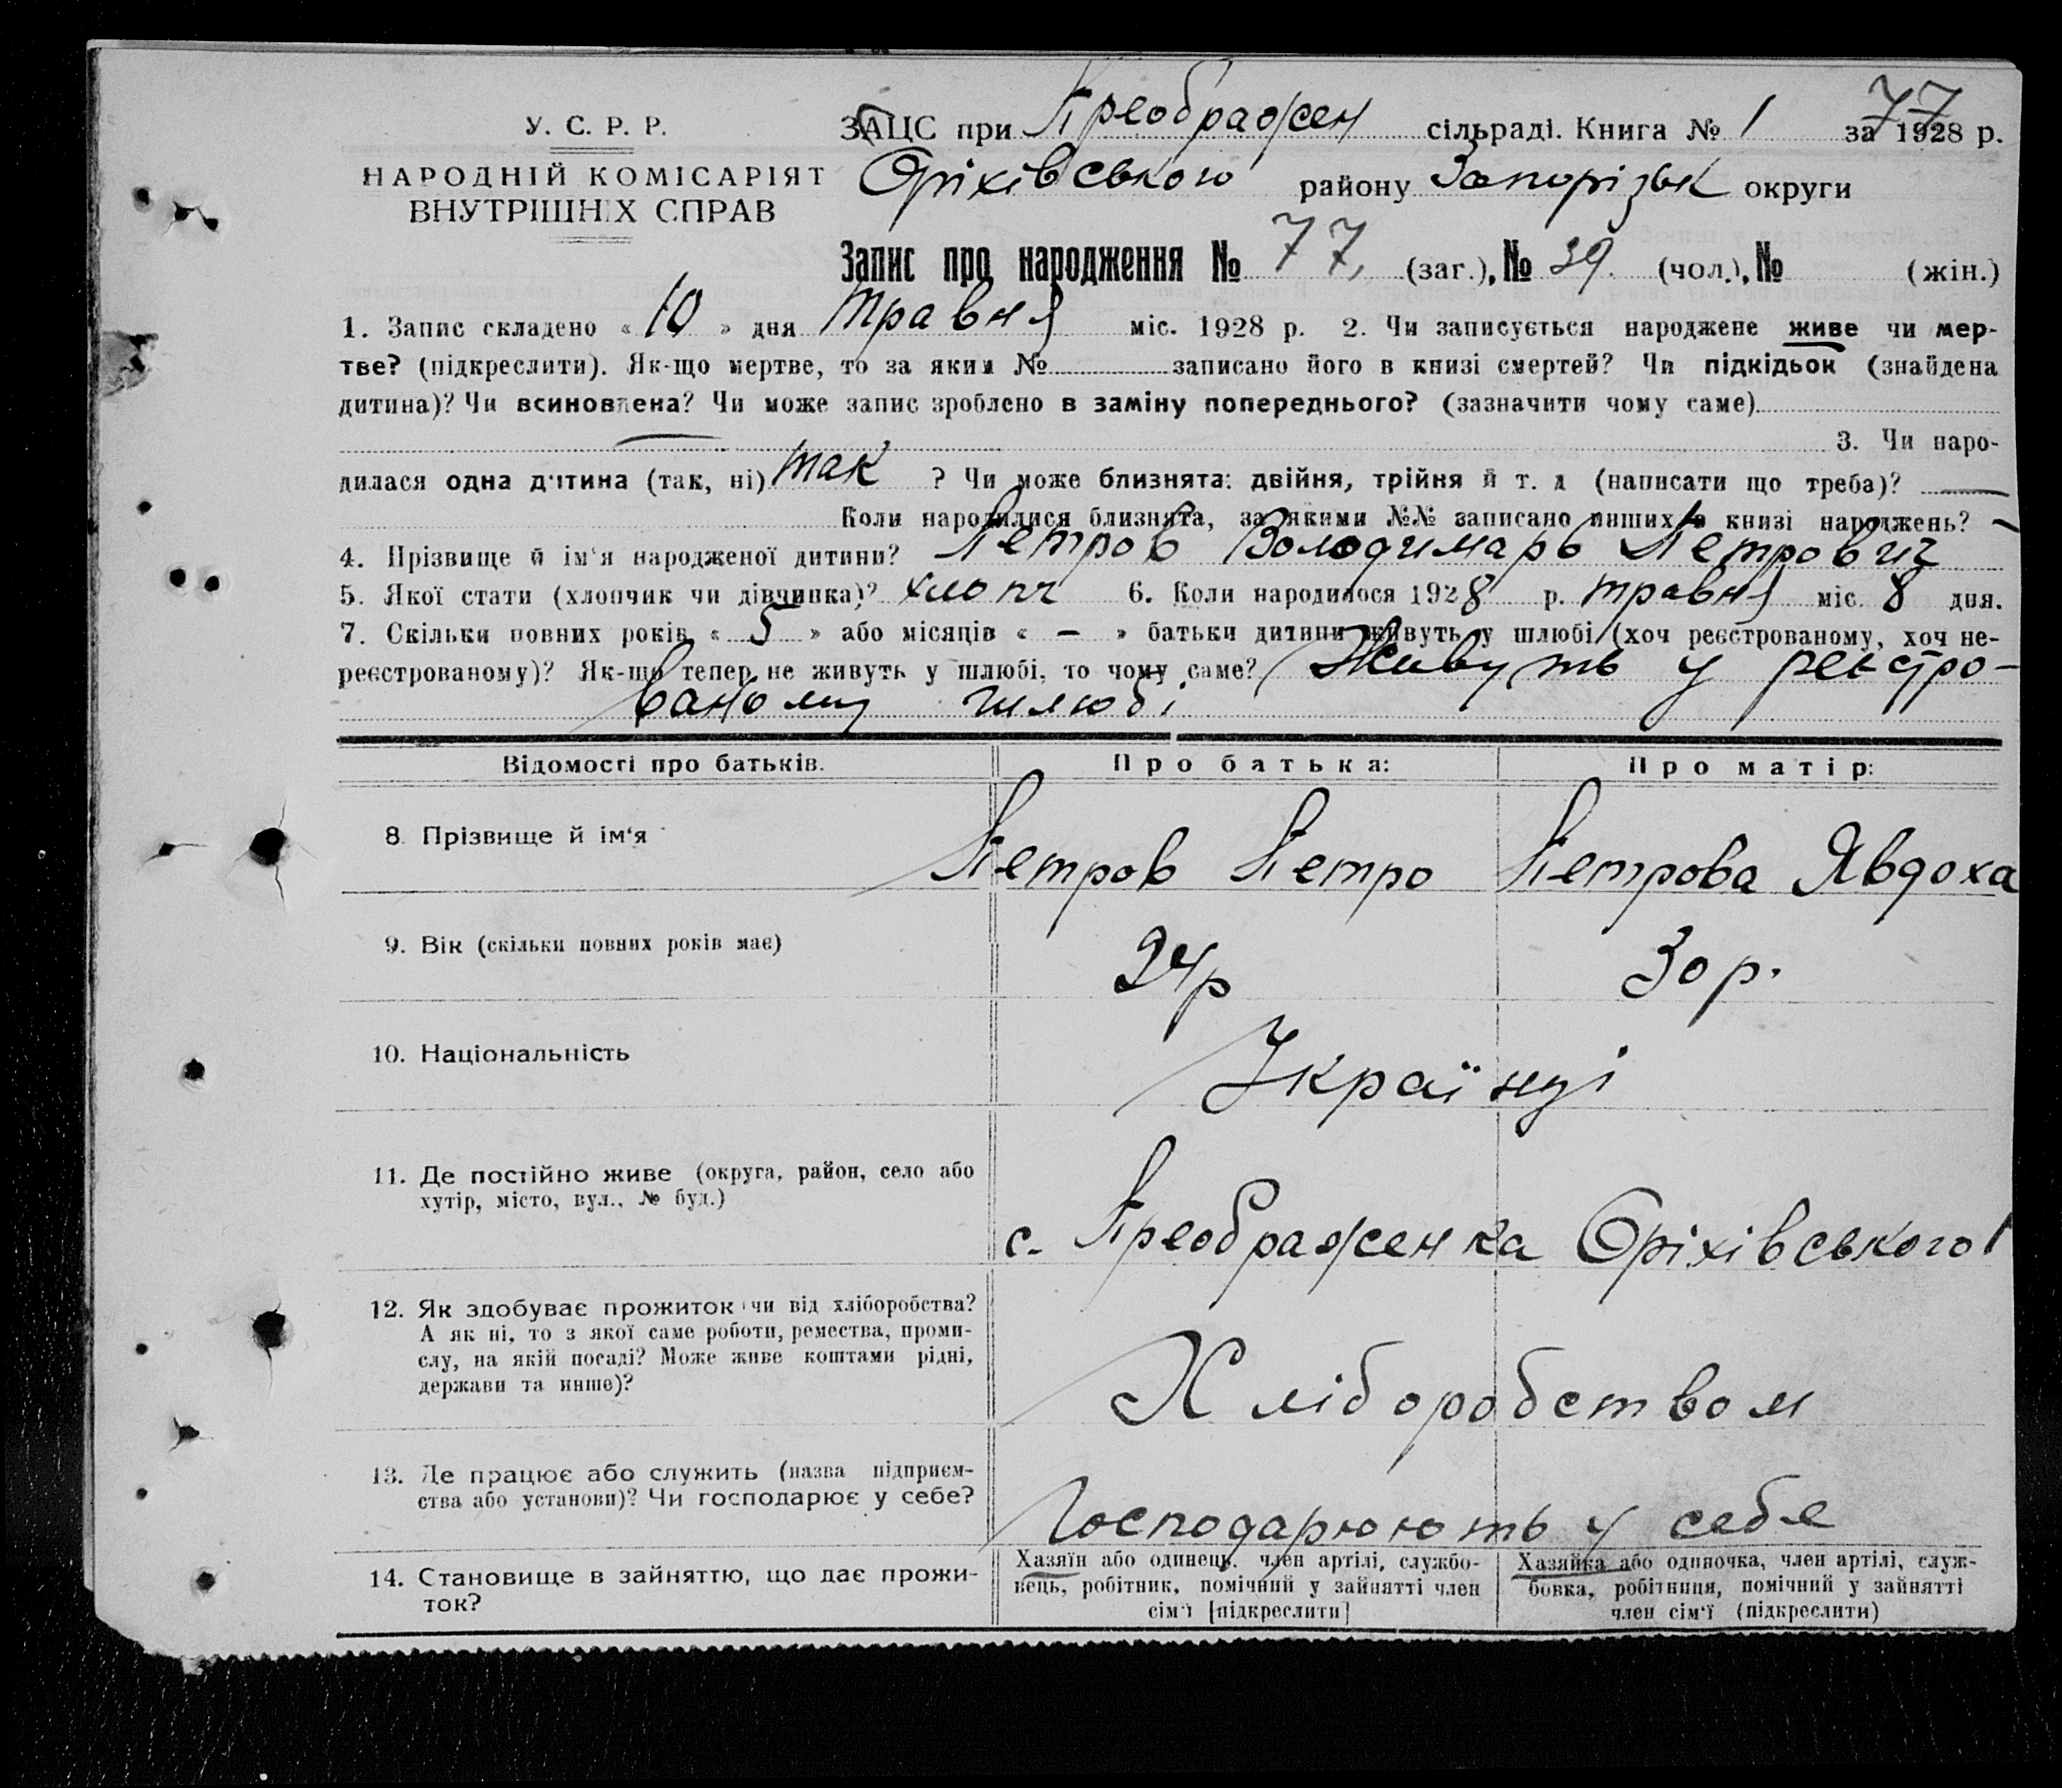 77
У. С. Р. Р.
ЗАЦС при Преображен сільраді. Книга № 1 за 1928 р.
НАРОДНІЙ КОМІСАРІЯТ
ВНУТРІШНІХ СПРАВ
Оріхівського району Запорізьк округи
Запис про народження № 77, (заг.), № 39. (чол.), № (жін.)
1. Запис складено « 10 » дня травня міс. 1928 р. 2. Чи записується народжене живе чи мер-
тве? (підкреслити). Як-що мертве, то за яким № записано його в книзі смертей? Чи підкідьок (знайдена
дитина)? Чи всиновлена? Чи може запис зроблено в заміну попереднього? (зазначити чому саме)
3. Чи наро-
дилася одна дитина (так, ні) так ? Чи може близнята: двійня, трійня й т. д (написати що треба)? —
Коли народилися близнята, за якими №№ записано инших в книзі народжень? —
4. Прізвище й ім'я народженої дитини? Петров Володимарь Петрович
5. Якої стати (хлопчик чи дівчинка)? хлопч 6. Коли народилося 1928 р. травня міс. 8 дня.
7. Скільки повних років « 5 » або місяців « — » батьки дитини живуть у шлюбі (хоч реєстрованому, хоч не-
реєстрованому)? Як-що тепер не живуть у шлюбі, то чому саме? Живуть у реєстро-
ваному шлюбі
Відомості про батьків. Про батька: Про матір:
8. Прізвище й ім'я Петров Петро Петрова Явдоха
9. Вік (скільки повних років має) 24р 30 р.
10. Національність Українці
11. Де постійно живе (округа, район, село або
хутір, місто, вул., № буд.)
с. Преображенка Оріхівського
12. Як здобуває прожиток чи від хліборобства?
А як ні, то з якої саме роботи, ремества, проми-
слу, на якій посаді? Може живе коштами рідні,
держави та инше)?
Хліборобством
13. Де працює або служить (назва підприєм-
ства або установи)? Чи господарює у себе?
Господарюють у себе
14. Становище в зайняттю, що дає прожи-
ток?
Хазяїн або одинець, член артілі, службо-
вець, робітник, помічний у зайнятті член
сім'ї [підкреслити]
Хазяйка або одиночка, член артілі, служ-
бовка, робітниця, помічний у зайнятті
член сім'ї (підкреслити)